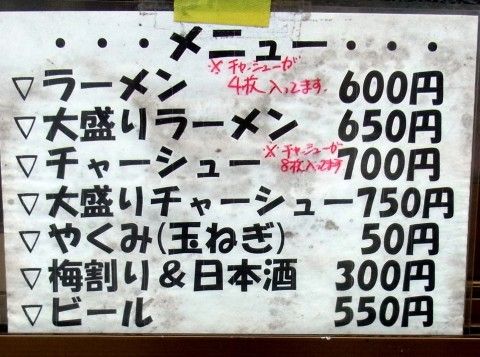 ・・・メニュー・・・
※チャーシューが
4枚入ってます
▽ラーメン 600円
▽大盛りラーメン 650円
※チャーシューが
8枚入ってます
▽チャーシュー 700円
▽大盛りチャーシュー 750円
▽やくみ(玉ねぎ) 50円
▽梅割り&日本酒 300円
▽ビール 550円